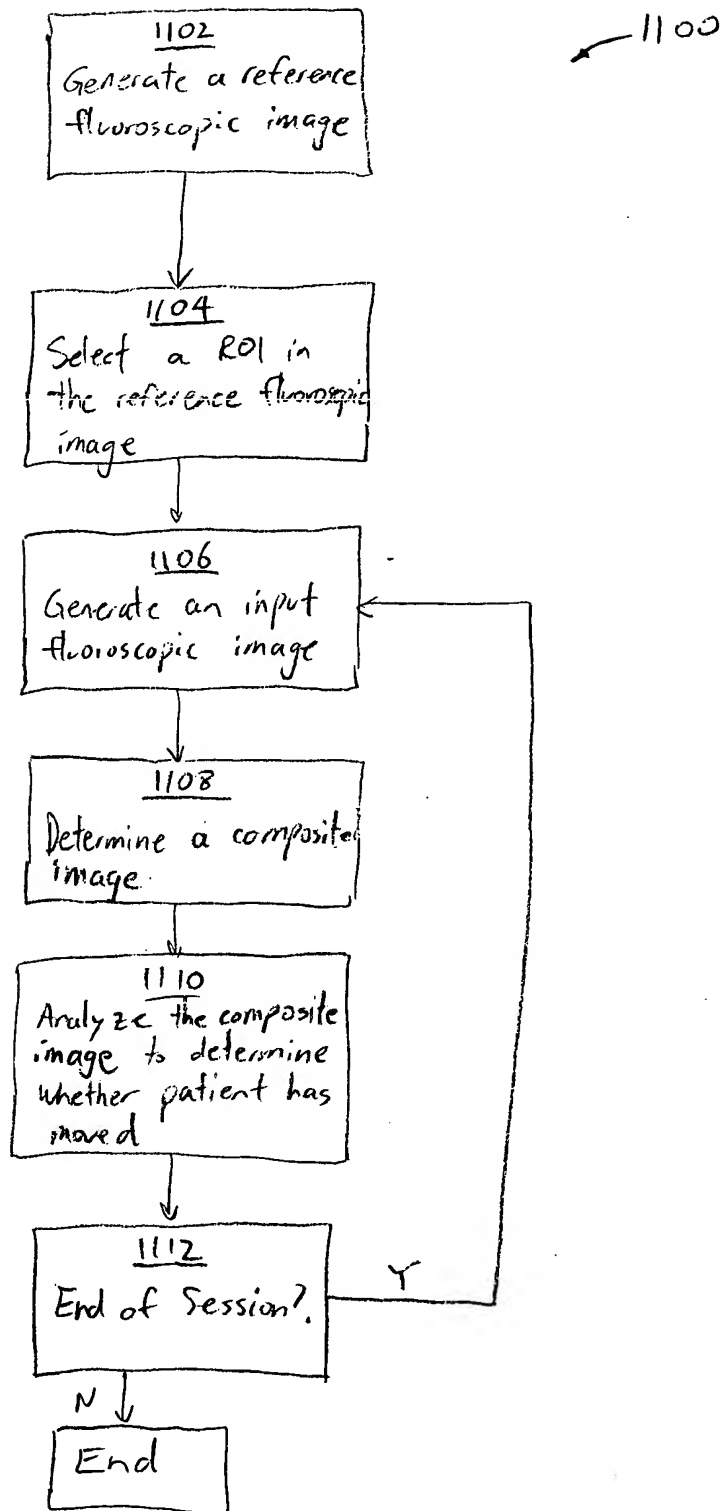 1100
1102
Generate a reference
fluoroscopic image
1104
Select a ROI in
the reference fluoroscopic
image
1106
Generate an input
fluoroscopic image
1108
Determine a composite
image
1110
Analyze the composite
image to determine
whether patient has
moved
1112
End of Session?
Y
N
End